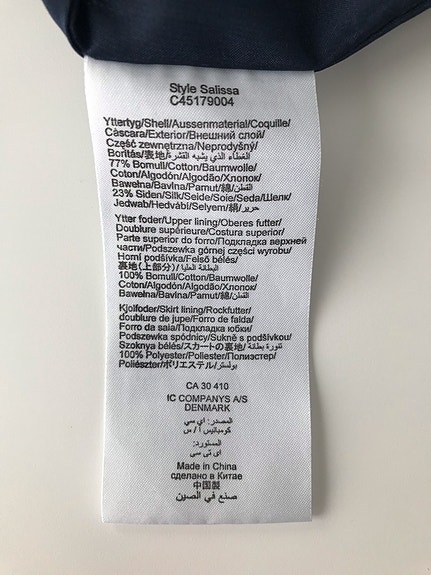 Style Salissa
C45179004
Yttertyg/Shell/Aussenmaterial/Coquille/
Càscara/Exterior/Внешний слой/
Część zewnętrzna/Neprodyšný/
Borítás/表地/الغطاء الذي يشبه القشرة
77% Bomull/Cotton/Baumwolle/
Coton/Algodón/Algodão/Хлопок/
Bawełna/Bavlna/Pamut/綿/القطن/
23% Siden/Silk/Seide/Soie/Seda/Шелк/
Jedwab/Hedvábí/Selyem/絹/حرير
Ytter foder/Upper lining/Oberes futter/
Doublure supérieure/Costura superior/
Parte superior do forro/Подкладка верхней
части/Podszewka górnej części wyrobu/
Horní podšívka/Felső bélés/
裏地(上部分)/البطانة العليا
100% Bomull/Cotton/Baumwolle/
Coton/Algodón/Algodão/Хлопок/
Bawełna/Bavlna/Pamut/綿/القطن
Kjolfoder/Skirt lining/Rockfutter/
doublure de jupe/Forro de falda/
Forro da saia/Подкладка юбки/
Podszewka spódnicy/Sukně s podšívkou/
Szoknya bélés/スカートの裏地/تنورة بطانة
100% Polyester/Poliester/Полиэстер/
Poliészter/ポリエステル/بوليستر
CA 30 410
IC COMPANYS A/S
DENMARK
المصدر: اي سي
كومبانيس ا / س
المستورد:
اى تى سى
Made in China
сделано в Китае
中国製
صنع في الصين